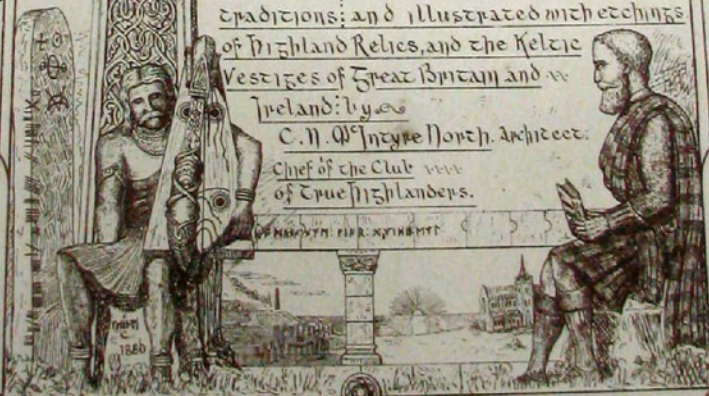 traditions: and illustrated with etchings
of Highland Relics, and the Keltic
Vestiges of Great Britain and
Ireland: by
C. N. McIntyre North. Architect:
Chief of the Club
of True Highlanders.
1886